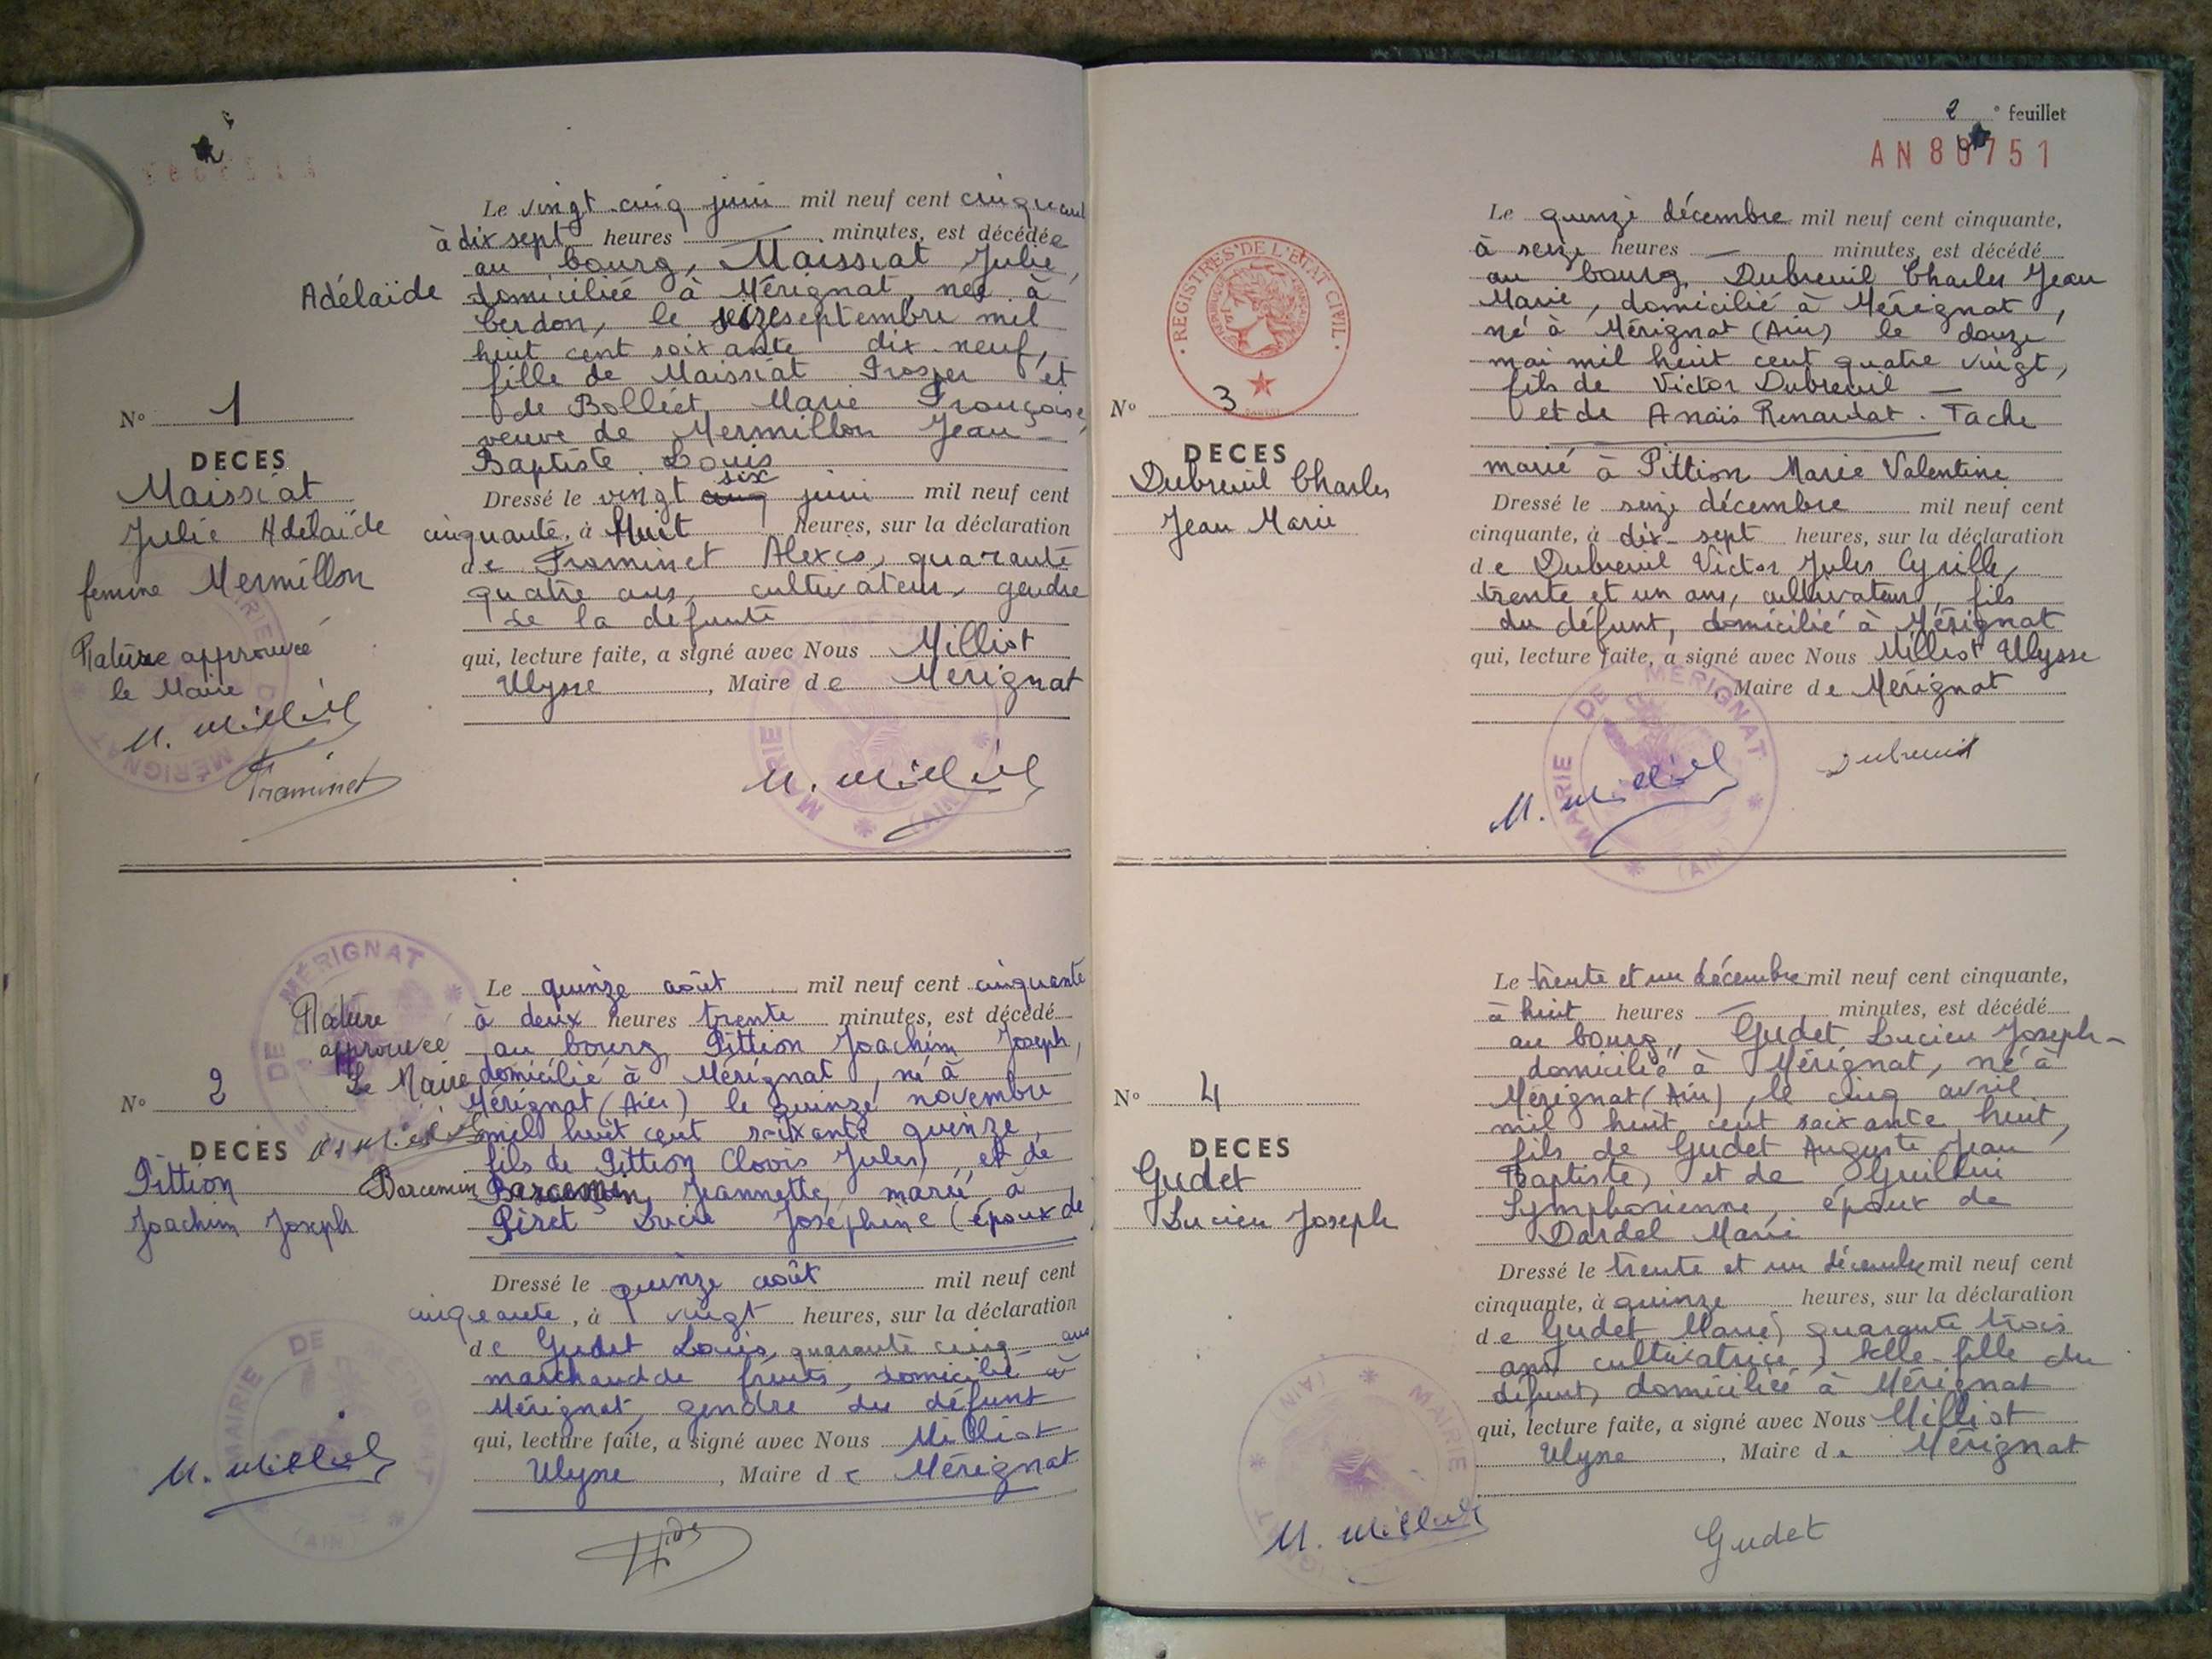 Le vingt cinq juin mil neuf cent cinquante
à dix sept heures — minutes, est décédée
au bourg, Maissiat Julie,
Adélaïde domiciliée à Mérignat, née à
Cerdon, le seize septembre mil
huit cent soixante dix-neuf,
fille de Maissiat Prosper et
de Bolliet Marie Françoise,
veuve de Mermillon Jean-
Baptiste Louis
Dressé le vingt six juin mil neuf cent
cinquante, à Huit heures, sur la déclaration
de Framinet Alexis, quarante
quatre ans, cultivateur, gendre
de la défunte
qui, lecture faite, a signé avec Nous Milliat
Ulysse, Maire de Mérignat
N° 1
DECES
Maissiat
Julie Adélaïde
femme Mermillon
Rature approuvée
le Maire
U. Milliat
Framinet
U. Milliat
MAIRIE DE MÉRIGNAT (AIN)
Le quinze août mil neuf cent cinquante
à deux heures trente minutes, est décédé
au bourg, Pittion Joachim Joseph,
domicilié à Mérignat, né à
Mérignat (Ain) le quinze novembre
mil huit cent soixante quinze,
fils de Pittion Clovis Jules, et de
Barcemin Jeannette, marié à
Piret Lucie Joséphine (époux de)
Dressé le quinze août mil neuf cent
cinquante, à vingt heures, sur la déclaration
de Gudet Louis, quarante cinq ans
marchand de fruits, domicilié à
Mérignat, gendre du défunt
qui, lecture faite, a signé avec Nous Milliat
Ulysse, Maire de Mérignat
Rature
approuvée
Le Maire
U. Milliat
N° 2
DECES
Pittion
Joachim Joseph
Barcemin
U. Milliat
MAIRIE DE MÉRIGNAT (AIN)
2e feuillet
AN 80751
REGISTRES DE L'ETAT CIVIL
N° 3
DECES
Dubreuil Charles
Jean Marie
Le quinze décembre mil neuf cent cinquante,
à seize heures — minutes, est décédé
au bourg, Dubreuil Charles Jean
Marie, domicilié à Mérignat,
né à Mérignat (Ain) le douze
mai mil huit cent quatre vingt,
fils de Victor Dubreuil —
et de Anaïs Renardat-Tache
marié à Pittion Marie Valentine
Dressé le seize décembre mil neuf cent
cinquante, à dix-sept heures, sur la déclaration
de Dubreuil Victor Jules Cyrille,
trente et un ans, cultivateur, fils
du défunt, domicilié à Mérignat
qui, lecture faite, a signé avec Nous Milliat Ulysse
Maire de Mérignat
U. Milliat
Dubreuil
MAIRIE DE MÉRIGNAT (AIN)
N° 4
DECES
Gudet
Lucien Joseph
Le trente et un décembre mil neuf cent cinquante,
à huit heures — minutes, est décédé
au bourg, Gudet Lucien Joseph-
domicilié à Mérignat, né à
Mérignat (Ain), le cinq avril
mil huit cent soixante huit,
fils de Gudet Auguste Jean
Baptiste, et de
Symphorienne, époux de
Dardel Marie
Dressé le trente et un décembre mil neuf cent
cinquante, à quinze heures, sur la déclaration
de Gudet Marie, quarante trois
ans, cultivatrice, belle-fille du
défunt, domiciliée à Mérignat
qui, lecture faite, a signé avec Nous Milliat
Ulysse, Maire de Mérignat
U. Milliat
Gudet
MAIRIE
(AIN)